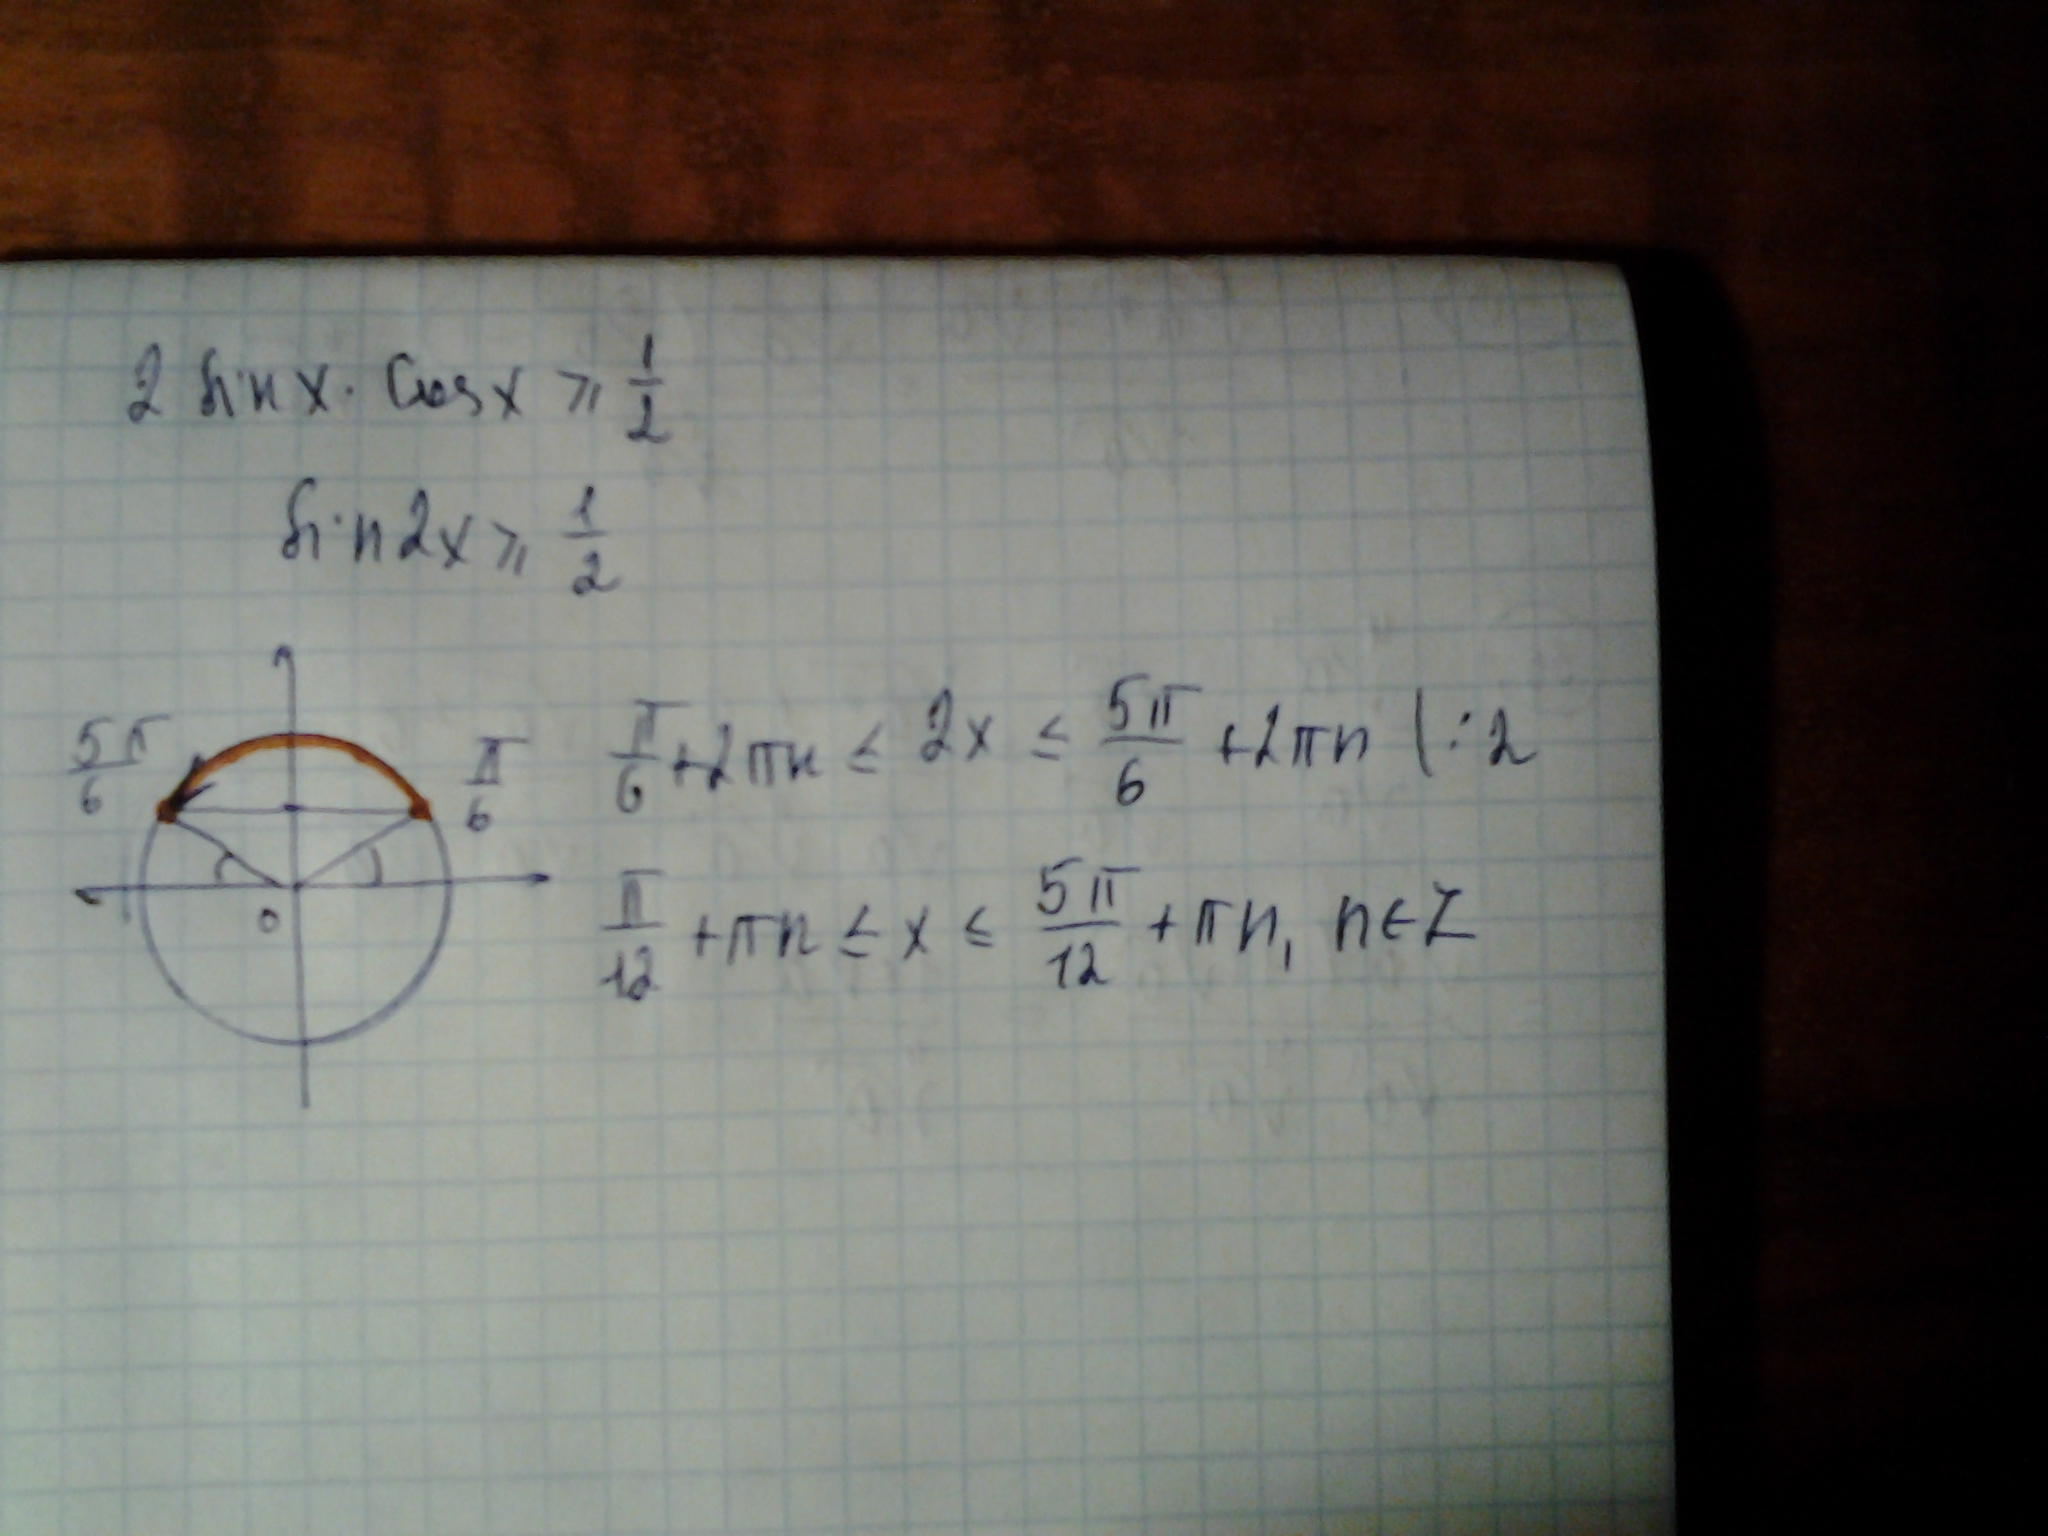 2 sin x · cos x ⩾ 1/2
sin 2x ⩾ 1/2
5π/6
π/6
0
π/6 + 2πn ≤ 2x ≤ 5π/6 + 2πn | : 2
π/12 + πn ≤ x ≤ 5π/12 + πn, n ∈ Z